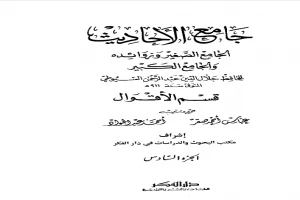 جامع الأحاديث
الجامع الصغير وزوائده
والجامع الكبير
للحافظ جلال الدين عبد الرحمن السيوطي
المتوفى سنة ٩١١ هـ
قسم الأقوال
جمع وترتيب
عباس أحمد صقر أحمد عبد الجواد
إشراف
مكتب البحوث والدراسات في دار الفكر
الجزء السادس
دار الفكر